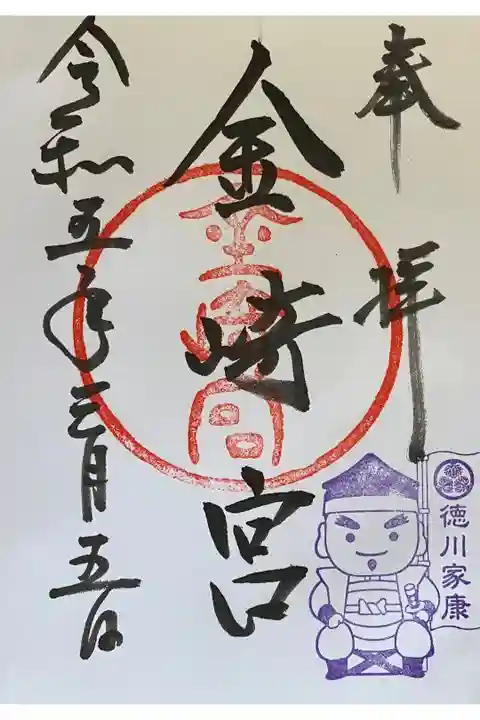 奉拝
金崎宮
令和五年三月五日
徳川家康